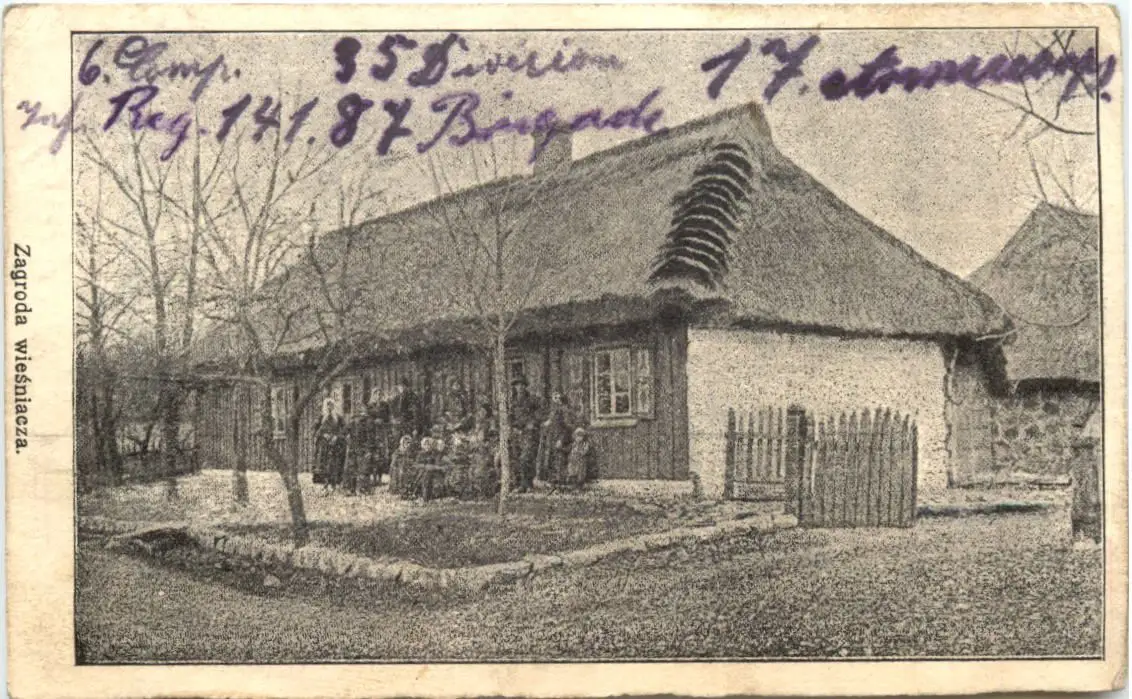 6. Comp. 35 Division 17. Armeekorps.
Inf. Reg. 141. 87 Brigade
Zagroda wieśniacza.